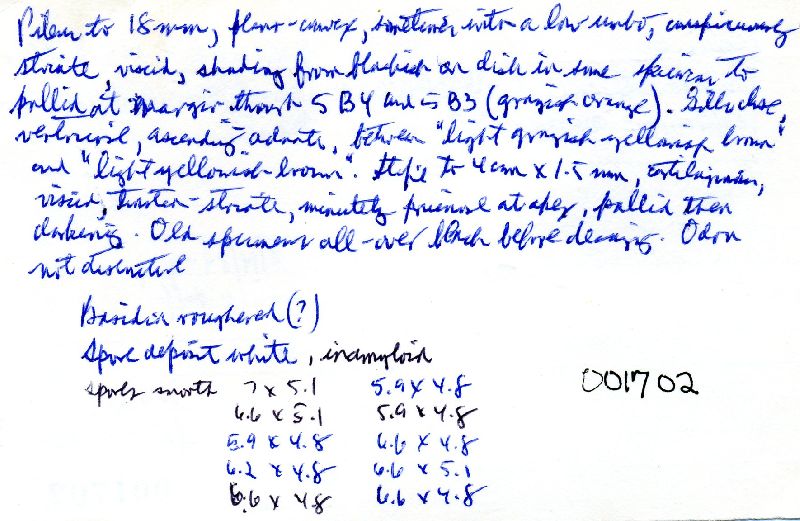 Pileus to 18 mm, plano-convex, sometimes with a low umbo, conspicuously
striate, viscid, shading from blackish on disk in some specimens to
pallid at margin through 5 B4 and 5 B3 (grayish orange). Gills close,
ventricose, ascending adnate, between "light grayish yellowish brown"
and "light yellowish-brown". Stipe to 4 cm x 1.5 mm, cartilaginous,
viscid, twisted-striate, minutely pruinose at apex, pallid then
darkening. Old specimens all-over black before decaying. Odor
not distinctive
Basidia roughened (?)
Spore deposit white, inamyloid
spores smooth 7 x 5.1 5.9 x 4.8
6.6 x 5.1 5.9 x 4.8
5.9 x 4.8 6.6 x 4.8
6.2 x 4.8 6.6 x 5.1
6.6 x 4.8 6.6 x 4.8
001702